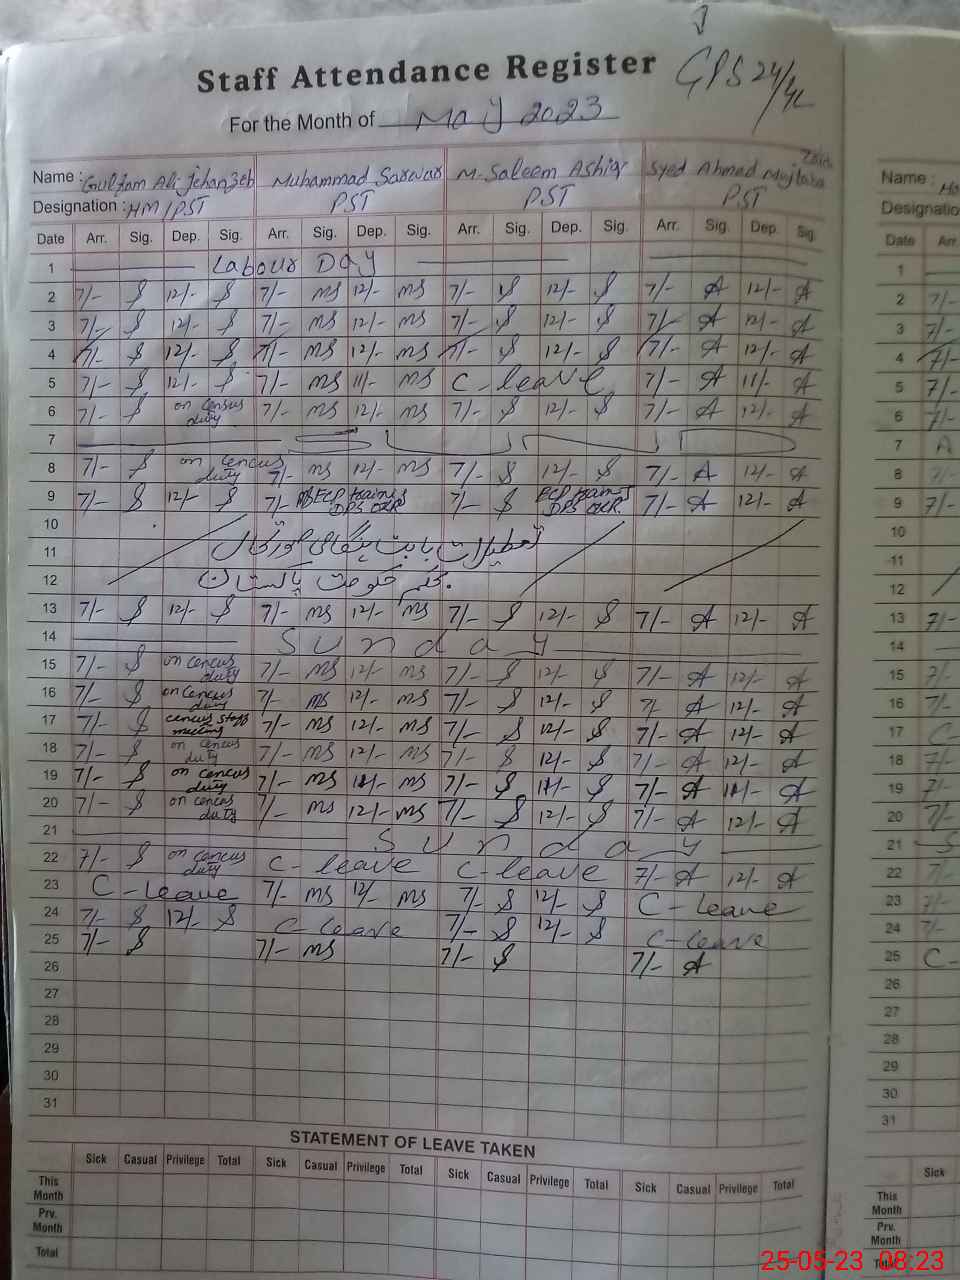 GPS 24/4L
Staff Attendance Register
For the Month of May 2023
Name : Gulfam Ali Jehanzeb Muhammad Sarwar M. Saleem Ashiq Syed Ahmad Mujtaba Zaidi
Designation : HM/PST PST PST PST
Date Arr. Sig. Dep. Sig. Arr. Sig. Dep. Sig. Arr. Sig. Dep. Sig. Arr. Sig. Dep. Sig.
1 Labour Day
2 7/- 12/- 7/- MS 12/- MS 7/- 12/- 7/- A 12/- A
3 7/- 12/- 7/- MS 12/- MS 7/- 12/- 7/- A 12/- A
4 7/- 12/- 7/- MS 12/- MS 7/- 12/- 7/- A 12/- A
5 7/- 12/- 7/- MS 11/- MS C-leave 7/- A 11/- A
6 7/- on census duty 7/- MS 12/- MS 7/- 12/- 7/- A 12/- A
7
8 7/- on cencus duty 7/- MS 12/- MS 7/- 12/- 7/- A 12/- A
9 7/- 12/- 7/- MS 7/- 7/- A 12/- A
10
11 تعطیلات بابت ہنگامی صورتحال
12 بحکم حکومت پاکستان
13 7/- 12/- 7/- MS 12/- MS 7/- 12/- 7/- A 12/- A
14 Sunday
15 7/- on cencus duty 7/- MS 12/- MS 7/- 12/- 7/- A 12/- A
16 7/- on cencus duty 7/- MS 12/- MS 7/- 12/- 7/- A 12/- A
17 7/- cencus staff meeting 7/- MS 12/- MS 7/- 12/- 7/- A 12/- A
18 7/- on cencus duty 7/- MS 12/- MS 7/- 12/- 7/- A 12/- A
19 7/- on cencus duty 7/- MS 11/- MS 7/- 11/- 7/- A 11/- A
20 7/- on cencus duty 7/- MS 12/- MS 7/- 12/- 7/- A 12/- A
21 Sunday
22 7/- on cencus duty C-leave C-leave 7/- A 12/- A
23 C-Leave 7/- MS 12/- MS 7/- 12/- C-Leave
24 7/- 12/- C-leave 7/- 12/- C-leave
25 7/- 7/- MS 7/- 7/- A
26
27
28
29
30
31
STATEMENT OF LEAVE TAKEN
Sick Casual Privilege Total Sick Casual Privilege Total Sick Casual Privilege Total Sick Casual Privilege Total
This Month
Prv. Month
Total
Name :
Designatio
Date Arr
1
2 7/-
3 7/-
4 7/-
5 7/-
6 7/-
7
8 7/-
9 7/-
10
11
12
13 7/-
14
15 7/-
16 7/-
17 C-
18 7/-
19 7/-
20 7/-
21 S
22 7/-
23 7/-
24 7/-
25 C-
26
27
28
29
30
31
Sick
This Month
Prv. Month
Total
25-05-23 08:23